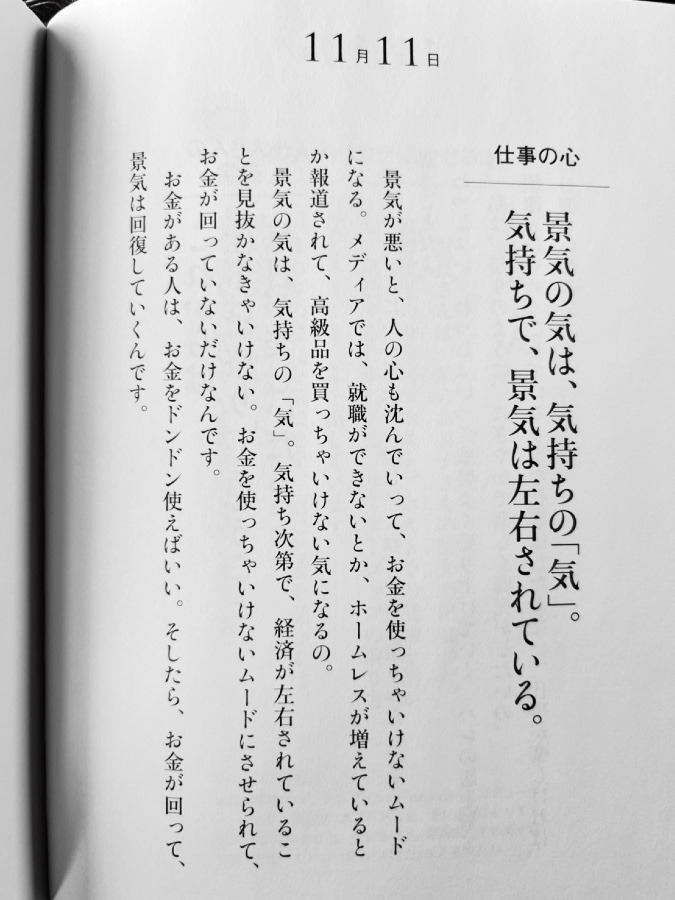 11月11日
仕事の心
景気の気は、気持ちの「気」。
気持ちで、景気は左右されている。
景気が悪いと、人の心も沈んでいって、お金を使っちゃいけないムード
になる。メディアでは、就職ができないとか、ホームレスが増えていると
か報道されて、高級品を買っちゃいけない気になるの。
景気の気は、気持ちの「気」。気持ち次第で、経済が左右されているこ
とを見抜かなきゃいけない。お金を使っちゃいけないムードにさせられて、
お金が回っていないだけなんです。
お金がある人は、お金をドンドン使えばいい。そしたら、お金が回って、
景気は回復していくんです。